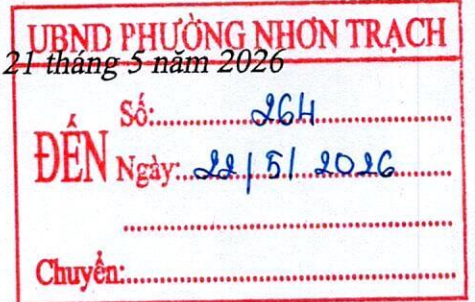 UBND PHƯỜNG NHƠN TRẠCH
21 tháng 5 năm 2026
ĐẾN
Số:.........264.........
Ngày:..22/5/2026......
..............................
Chuyển:..............................